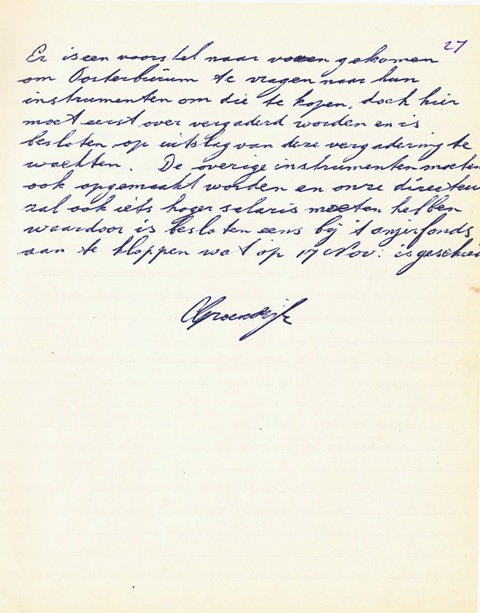 27
Er is een voorstel naar voren gekomen
om Oosterbierum te vragen naar hun
instrumenten om die te kopen, doch hier
moet eerst over vergaderd worden en is
besloten op uitslag van deze vergadering te
wachten. De overige instrumenten moeten
ook opgemaakt worden en onze directeur
zal ook iets hoger salaris moeten hebben
waardoor is besloten eens bij 't anjerfonds
aan te kloppen wat op 17 Nov. is geschied